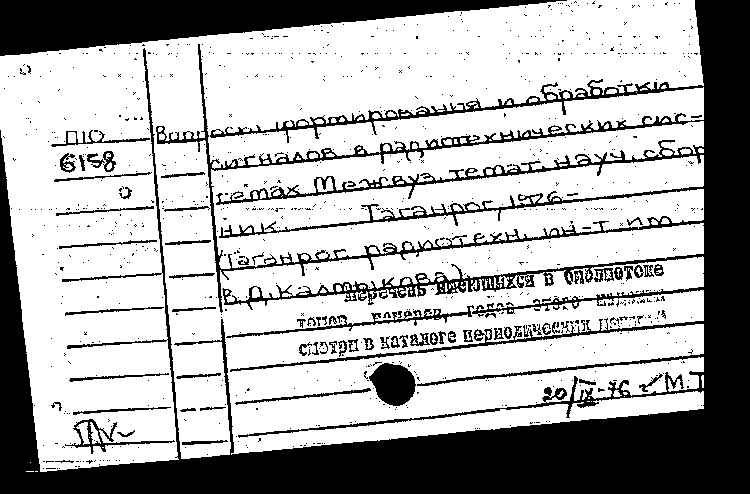 П10 Вопросы формирования и обработки
6158 сигналов в радиотехнических сис=
темах Межвуз. темат. науч. сбор
ник. Таганрог, 1976-
(Таганрог. радиотехн. ин-т им.
В.Д. Калмыкова).
Перечень имеющихся в библиотеке
томов, номеров, годов этого издания
смотри в каталоге периодических
20/IX-76 М.Т